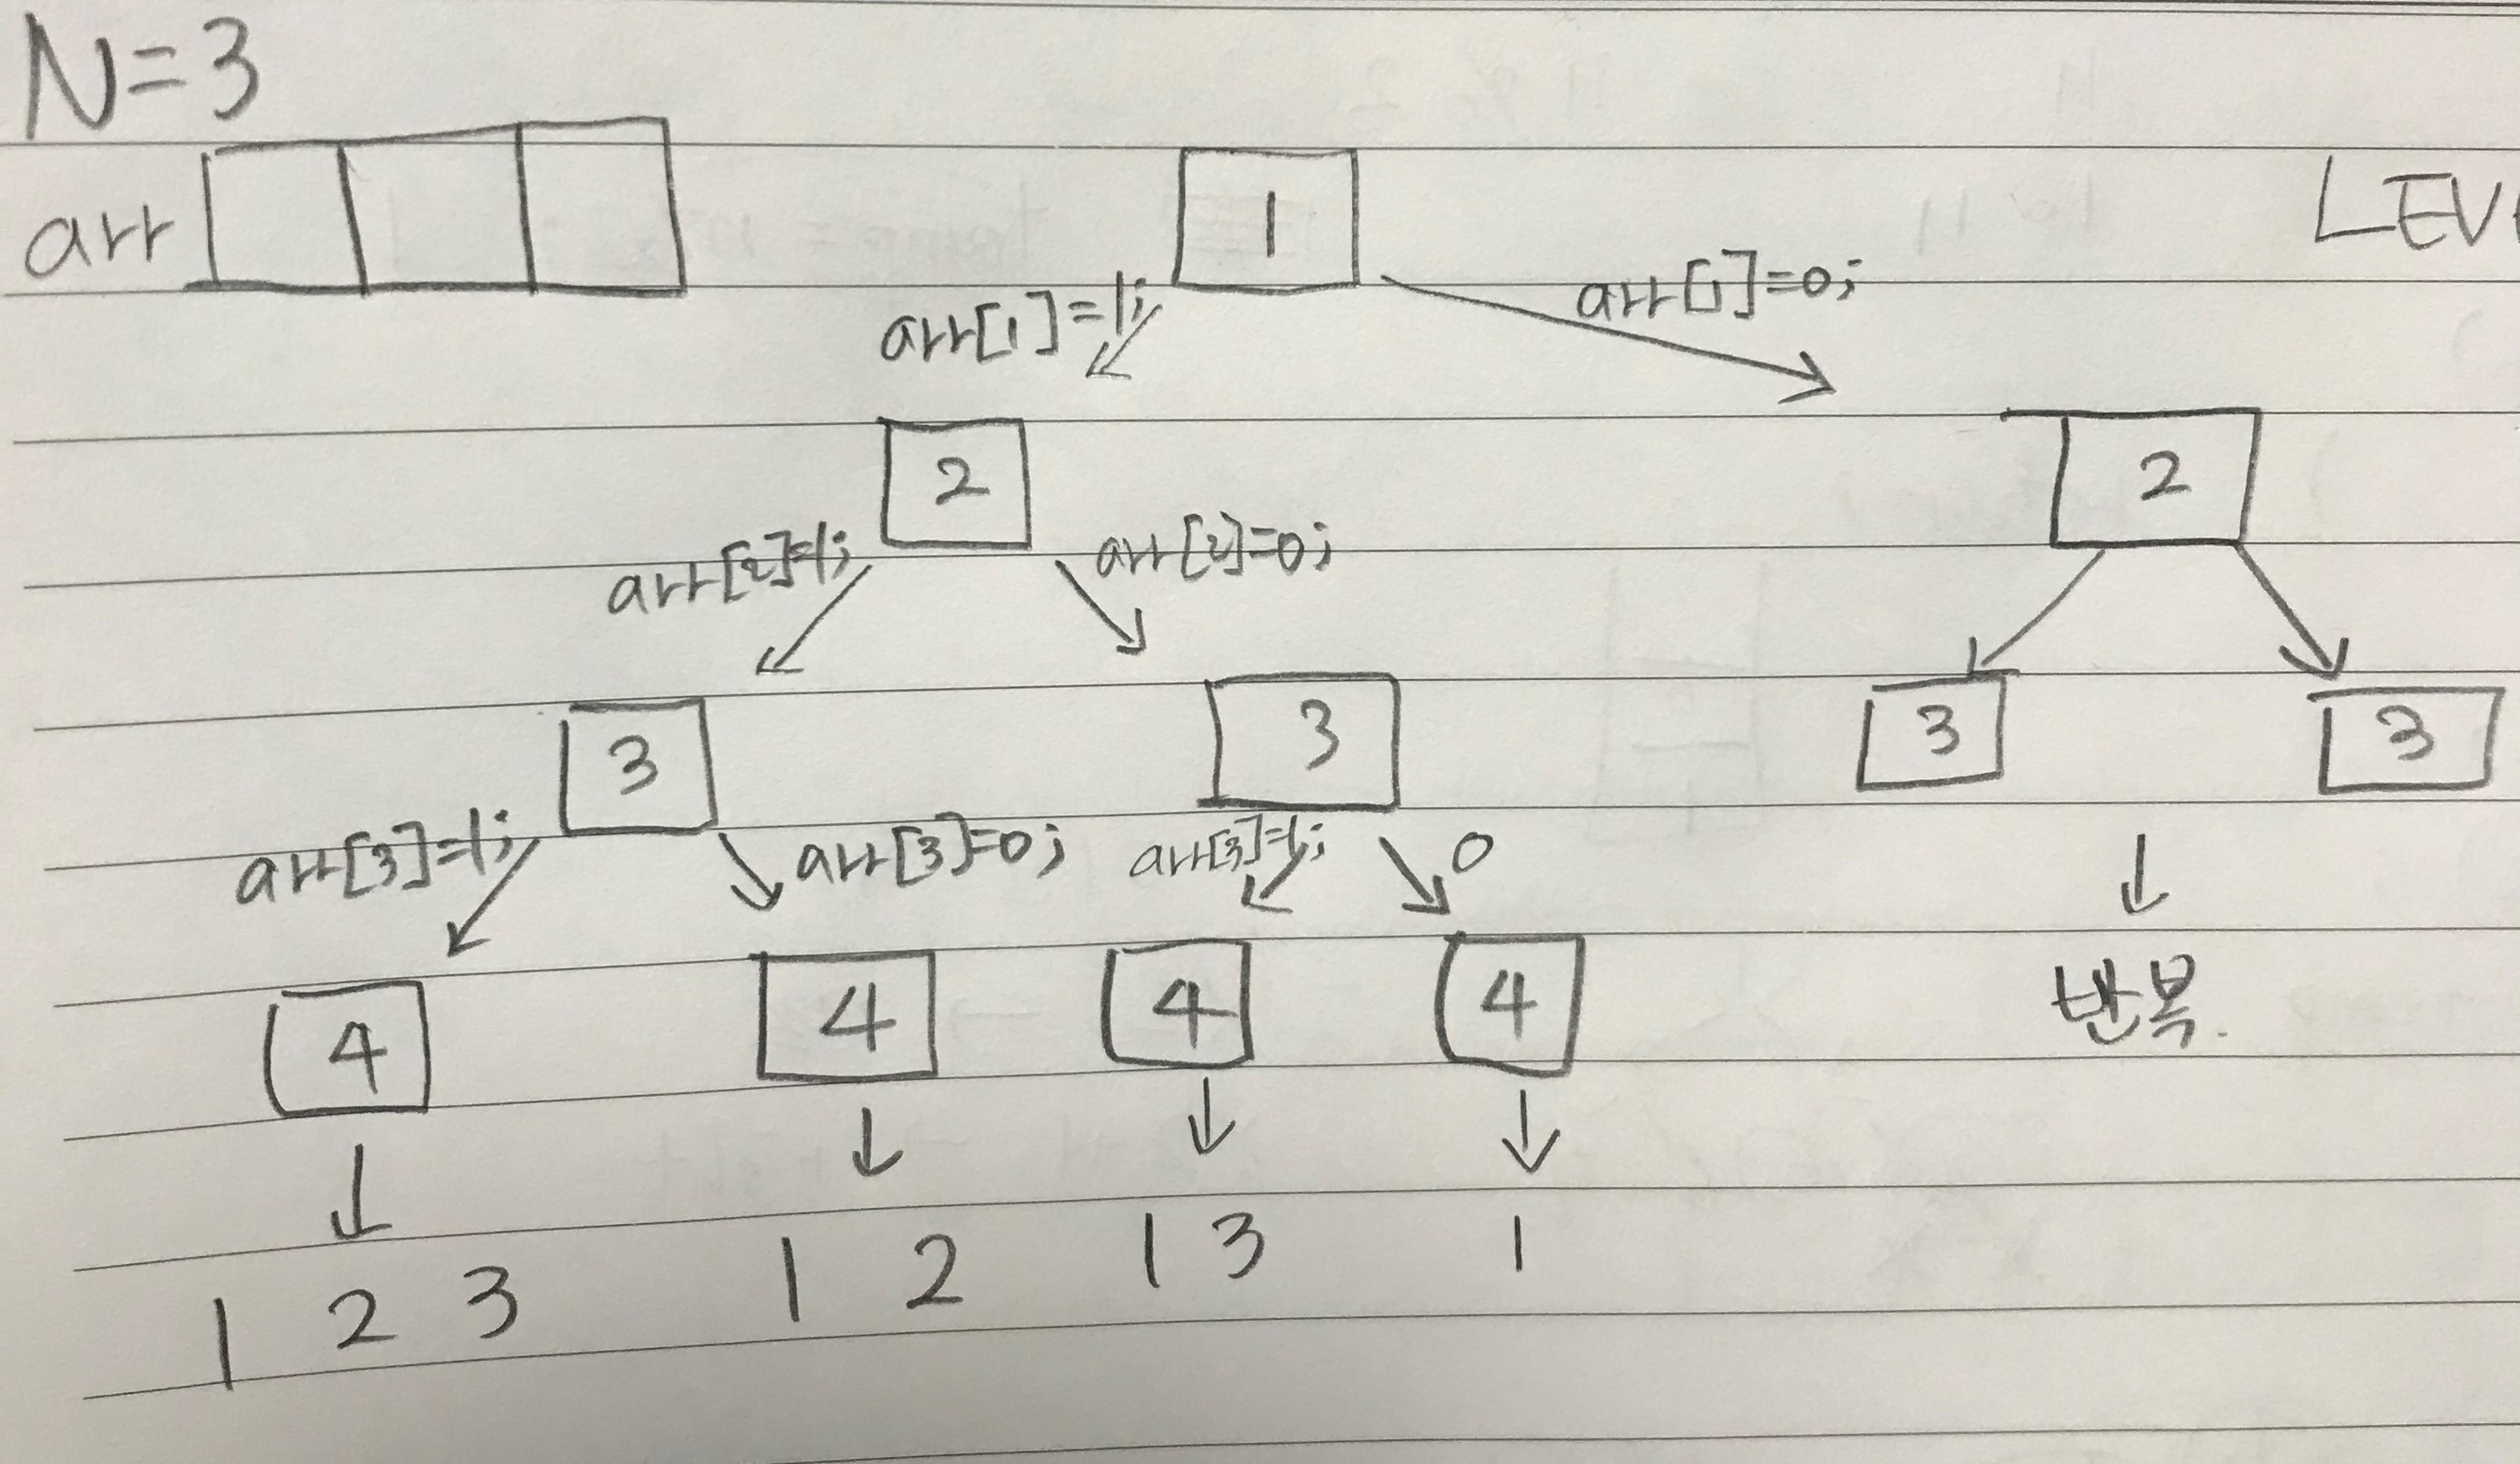 N=3
arr 1 LEV
arr[1]=1; arr[1]=0;
2 2
arr[2]=1; arr[2]=0;
3 3 3 3
arr[3]=1; arr[3]=0; arr[3]=1; 0
4 4 4 4 반복.
1 2 3 1 2 1 3 1